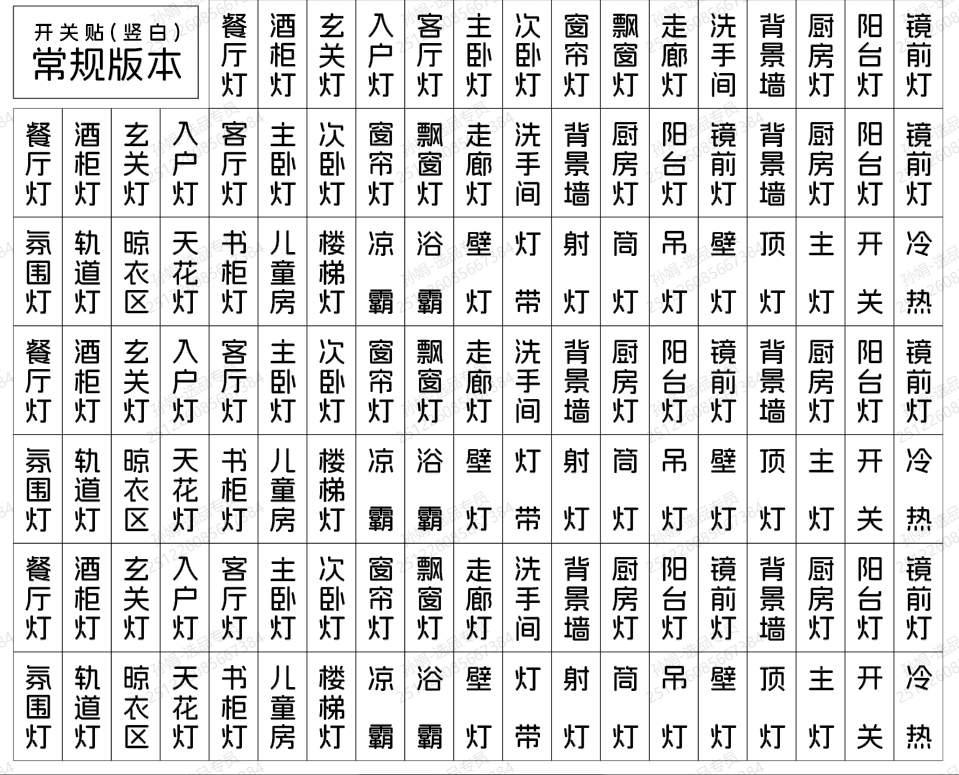 开关贴(竖白)
常规版本
餐厅灯 酒柜灯 玄关灯 入户灯 客厅灯 主卧灯 次卧灯 窗帘灯 飘窗灯 走廊灯 洗手间 背景墙 厨房灯 阳台灯 镜前灯
餐厅灯 酒柜灯 玄关灯 入户灯 客厅灯 主卧灯 次卧灯 窗帘灯 飘窗灯 走廊灯 洗手间 背景墙 厨房灯 阳台灯 镜前灯 背景墙 厨房灯 阳台灯 镜前灯
氛围灯 轨道灯 晾衣区 天花灯 书柜灯 儿童房 楼梯灯 凉霸 浴霸 壁灯 灯带 射灯 筒灯 吊灯 壁灯 顶灯 主灯 开关 冷热
餐厅灯 酒柜灯 玄关灯 入户灯 客厅灯 主卧灯 次卧灯 窗帘灯 飘窗灯 走廊灯 洗手间 背景墙 厨房灯 阳台灯 镜前灯 背景墙 厨房灯 阳台灯 镜前灯
氛围灯 轨道灯 晾衣区 天花灯 书柜灯 儿童房 楼梯灯 凉霸 浴霸 壁灯 灯带 射灯 筒灯 吊灯 壁灯 顶灯 主灯 开关 冷热
餐厅灯 酒柜灯 玄关灯 入户灯 客厅灯 主卧灯 次卧灯 窗帘灯 飘窗灯 走廊灯 洗手间 背景墙 厨房灯 阳台灯 镜前灯 背景墙 厨房灯 阳台灯 镜前灯
氛围灯 轨道灯 晾衣区 天花灯 书柜灯 儿童房 楼梯灯 凉霸 浴霸 壁灯 灯带 射灯 筒灯 吊灯 壁灯 顶灯 主灯 开关 冷热